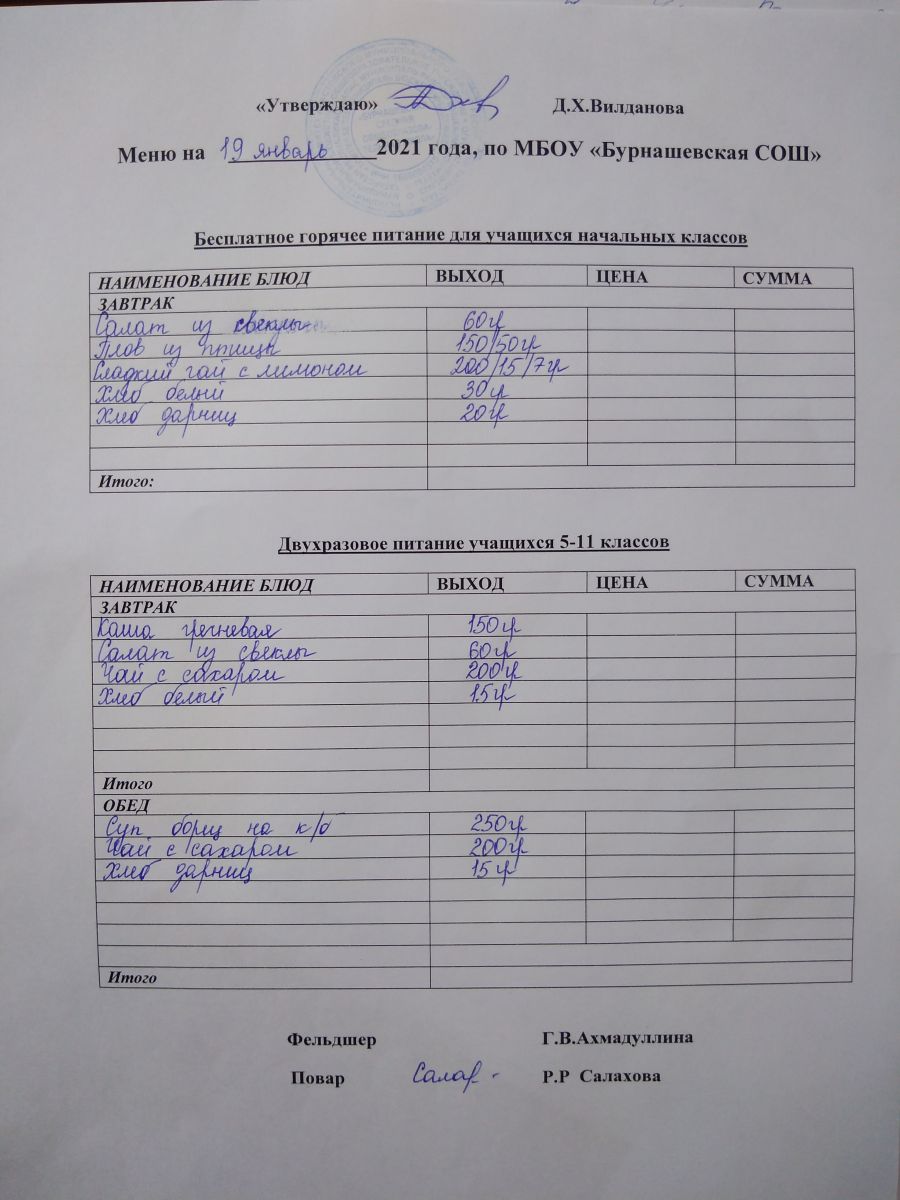 «Утверждаю» Д.Х.Вилданова
Меню на 19 январь 2021 года, по МБОУ «Бурнашевская СОШ»
Бесплатное горячее питание для учащихся начальных классов
НАИМЕНОВАНИЕ БЛЮД ВЫХОД ЦЕНА СУММА
ЗАВТРАК
Салат из свеклы 60гр
Плов из птицы 150/50гр
Сладкий чай с лимоном 200/15/7гр
Хлеб белый 30гр
Хлеб дарниц 20гр
Итого:
Двухразовое питание учащихся 5-11 классов
НАИМЕНОВАНИЕ БЛЮД ВЫХОД ЦЕНА СУММА
ЗАВТРАК
Каша гречневая 150гр
Салат из свеклы 60гр
Чай с сахаром 200гр
Хлеб белый 15гр
Итого
ОБЕД
Суп борщ на к/б 250гр
Чай с сахаром 200гр
Хлеб дарниц 15гр
Итого
Фельдшер Г.В.Ахмадуллина
Повар Салах- Р.Р Салахова